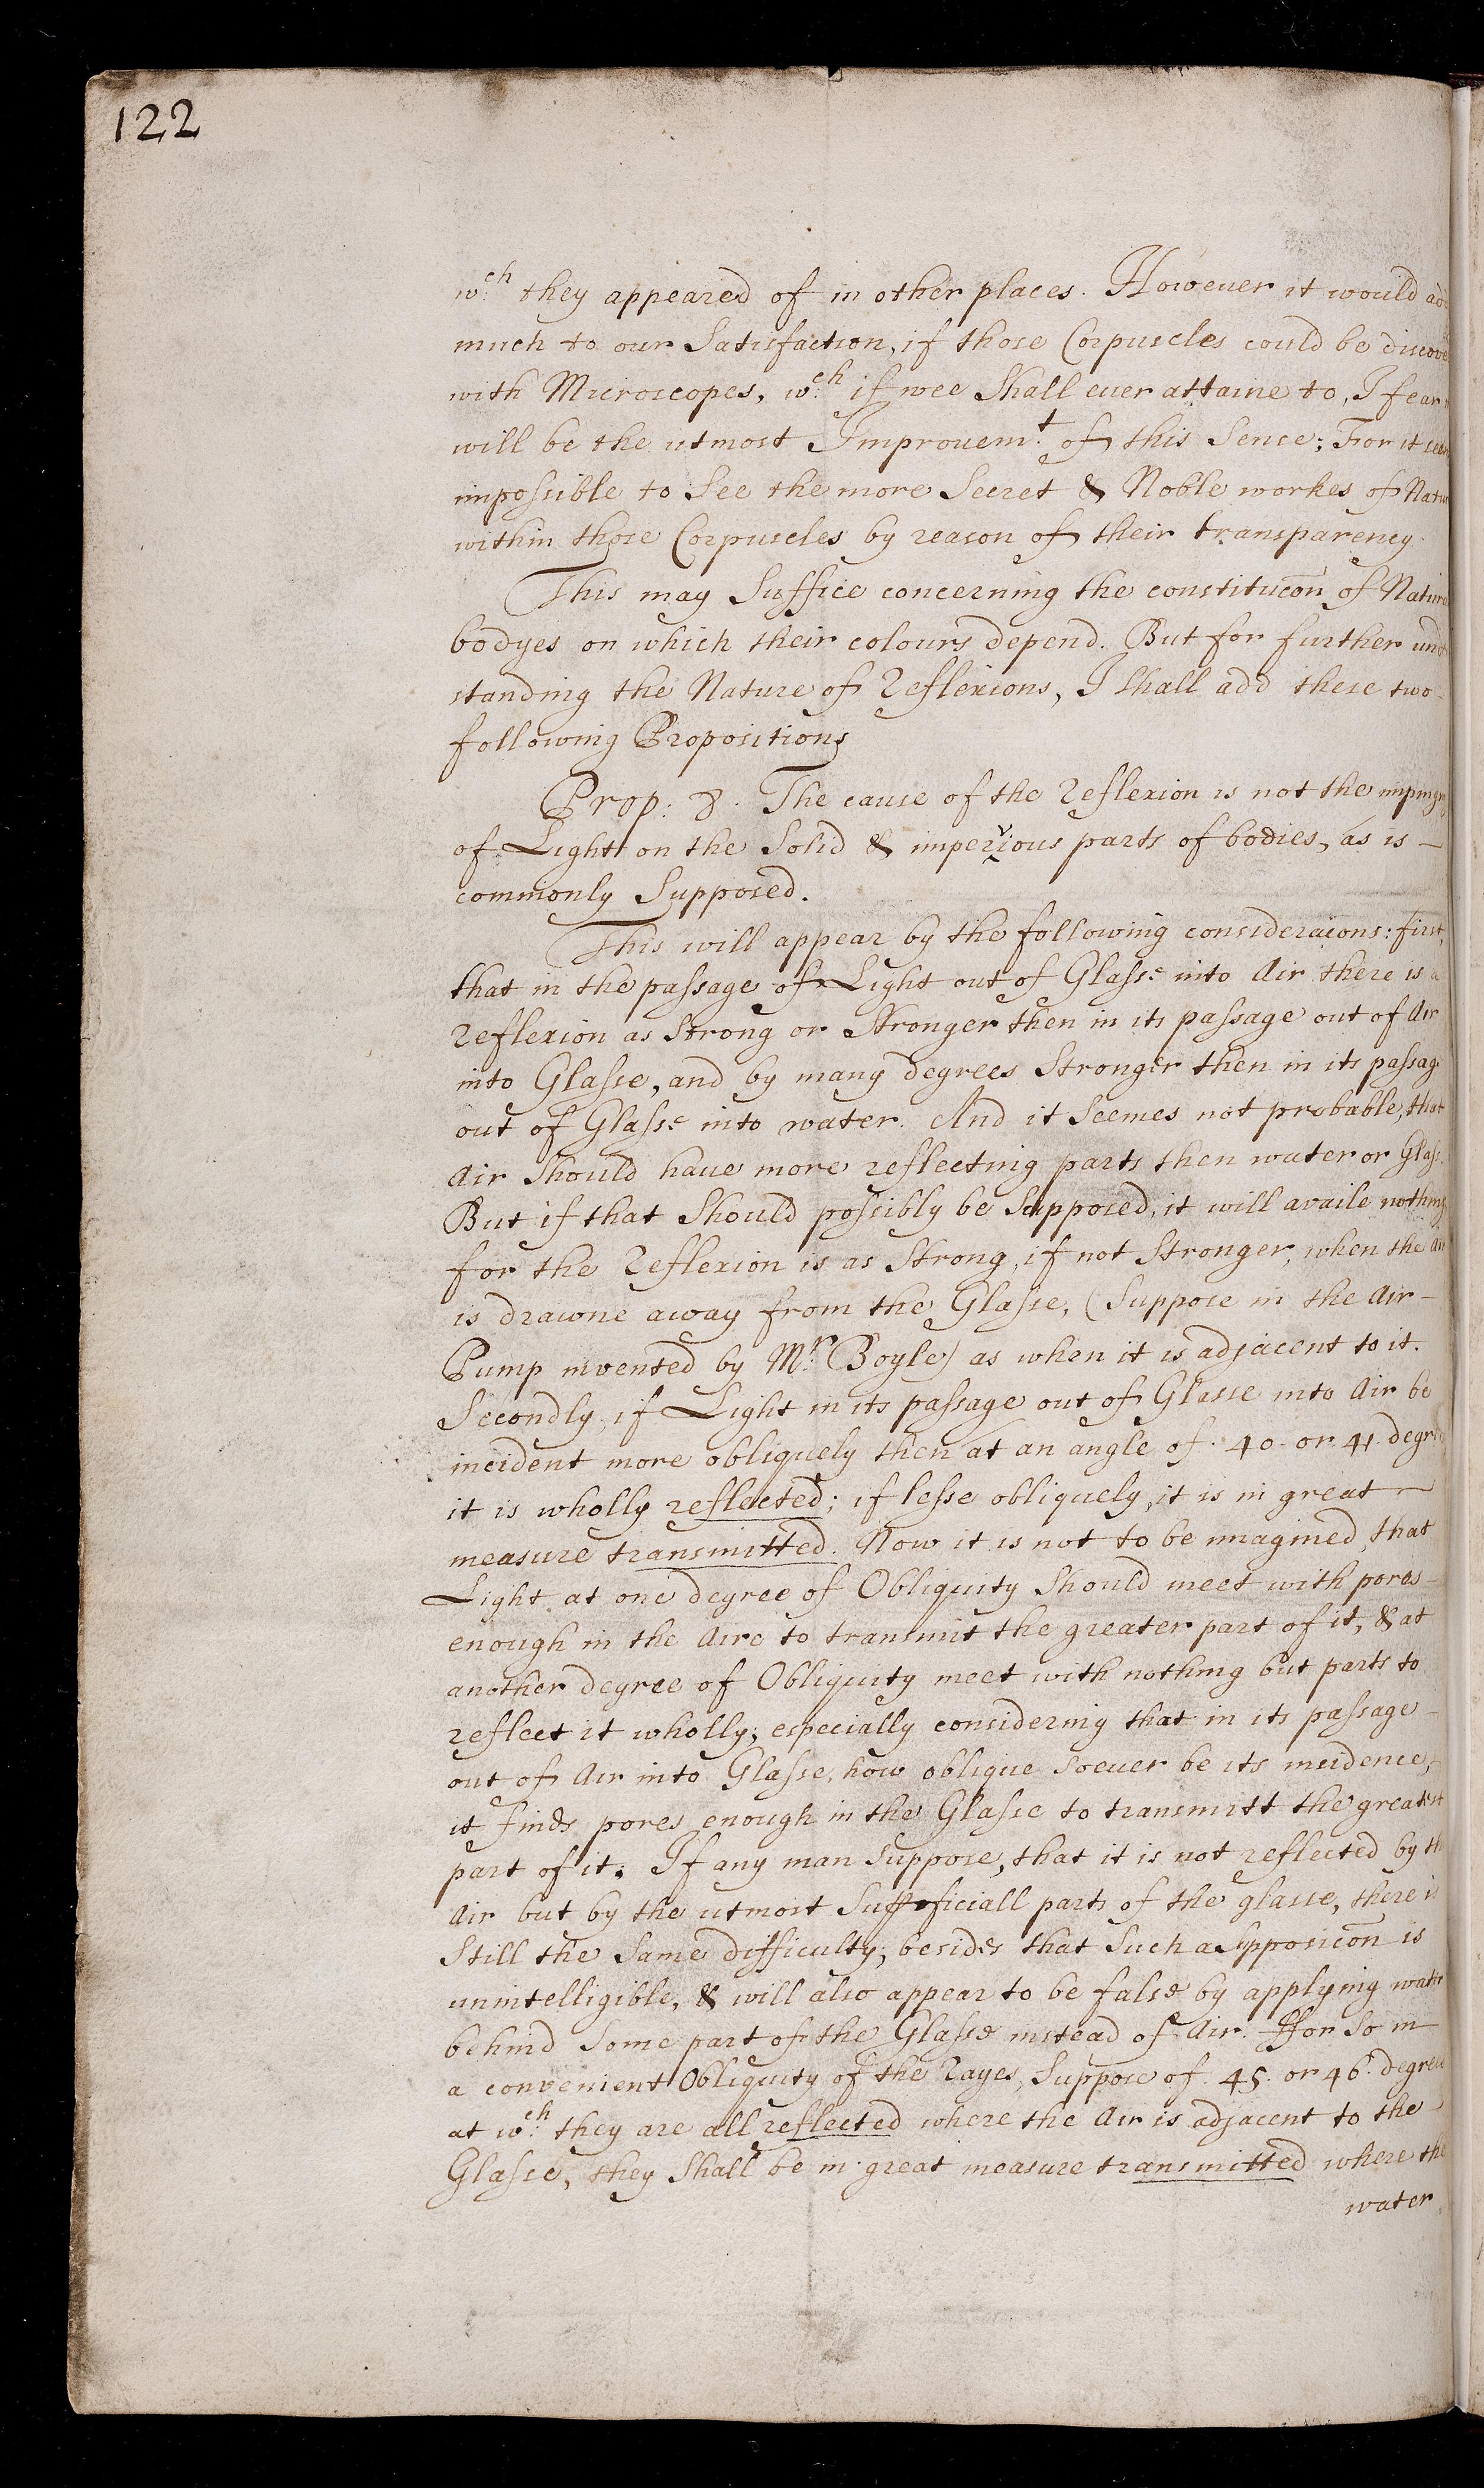 122
wch they appeared of in other places. However it would add
much to our Satisfaction, if those Corpuscles could be discove
with Microscopes, wch if wee Shall ever attaine to, I fear
will be the utmost Improuemt of this Sence; For it see
impossible to See the more Secret & Noble workes of Natu
within those Corpuscles by reason of their transparency.
This may Suffice concerning the constitucõn of Natura
bodyes on which their colours depend. But for further und
standing the Nature of Reflexions, I Shall add these two
following Propositions
Prop: 8. The cause of the Reflexion is not the impinging
of Light on the Solid & impervious parts of bodies, as is
commonly Supposed.
This will appear by the following consideracions: first,
that in the passage of Light out of Glasse into Air there is a
reflexion as Strong or Stronger then in its passage out of Air
into Glasse, and by many degrees Stronger then in its passage
out of Glasse into water. And it Seemes not probable, that
Air Should haue more reflecting parts then water or Glass.
But if that Should possibly be Supposed, it will availe nothing
for the Reflexion is as Strong, if not Stronger, when the Air
is drawne away from the Glasse, (Suppose in the Air-
Pump invented by Mr. Boyle) as when it is adjacent to it.
Secondly, if Light in its passage out of Glasse into Air be
incident more obliquely then at an angle of. 40. or. 41. degr
it is wholly reflected; if lesse obliquely, it is in great
measure transmitted. Now it is not to be imagined, that
Light at one degree of Obliquity Should meet with pores
enough in the Aire to transmit the greater part of it, & at
another degree of Obliquity meet with nothing but parts to
reflect it wholly; especially considering that in its passage
out of Air into Glasse, how oblique Soeuer be its incidence,
it finds pores enough in the Glasse to transmitt the greatest
part of it. If any man Suppose, that it is not reflected by the
Air but by the utmost Sufficiall parts of the glasse, there is
Still the Same difficulty; besides that Such a Supposicõn is
unintelligible, & will also appear to be false by applying water
behind Some part of the Glasse instead of Air. ffor So in
a convenient Obliquity of the Rayes, Suppose of. 45. or 46. degrees
at wch they are all reflected where the Air is adjacent to the
Glasse, they Shall be in great measure transmitted where the
water